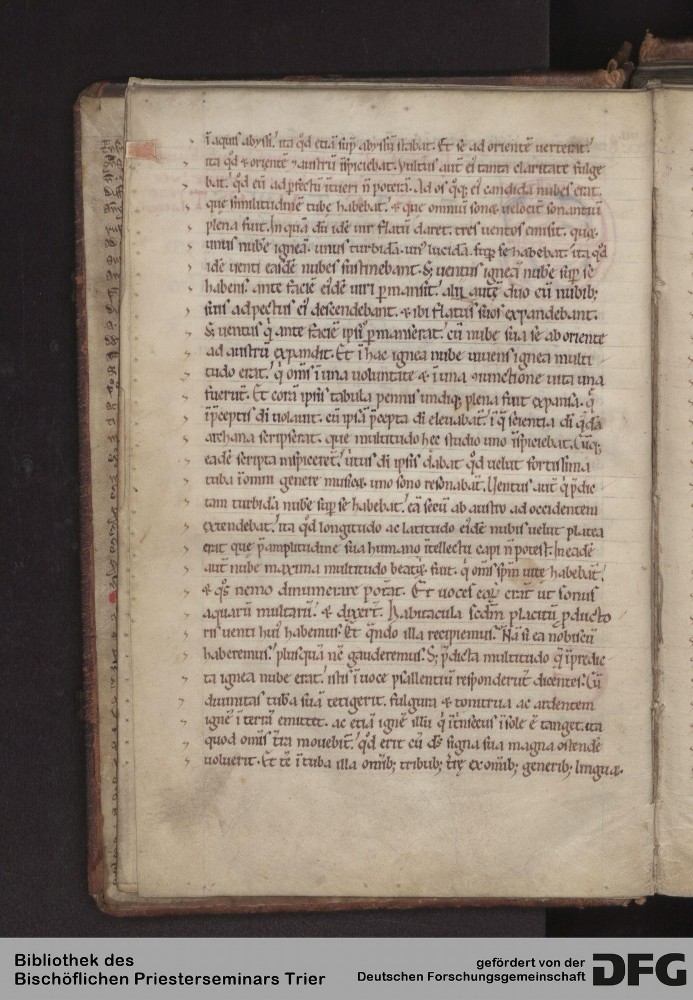 ı̄ aquis abyssi. ita qd̄ etiā sup̄ abyssū stabat. Et se ad orientē verterat.
ita qd̄ & orientē ⁊ austrū īspiciebat. Vultus aūt ei' tanta claritate fulge
bat. qd̄ eū ad pfectū ītueri n̄ poterā. Ad os q̨; ei' candida nubes erat.
que similitudinē tubę habebat. & que omniū sonoꝝ velocit' sonantiū
plena fuit. In quā dū idē vir flatū daret. tres ventos emisit. quoꝝ
unus nubē igneā. unus turbidā. un' lucidā. sup se habebat. ita qd̄
idē venti easdē nubes sustinebant. S; ventus igneā nubē sup se
habens. ante faciē eidē viri pmansit. alii autē duo cū nubib;
suis ad pectus ei' descendebant. & ibi flatus suos expandebant.
S; ventus q̄ ante faciē ipsi' pmanserat. cū nube sua se ab oriente
ad austrū expandit. Et ī hac ignea nube vivens ignea multi
tudo erat. q̄ om̄s ī una voluntate & ī una ⁊iunctione vita una
fuerunt. Et corā ipsis tabula pennis undiq; plena fuit expansa. q̄
ī pceptis dī volavit. cū ipsā pcepta dī elevabāt. ī q̄ scientia dī q̄dā
archana scripserat. que multitudo hec studio uno īspiciebat. Cūq;
eadē scripta īnspiceret. virtus dī ipsis dabat qd̄ velut fortissima
tuba ī omni genere musicoꝝ uno sono resonabāt. Ventus aūt q̄ pdic
tam turbidā nubē sup se habebat. eā secū ab austro ad occidentem
extendebat. ita qd̄ longitudo ac latitudo eidē nubis velut platea
erit que p amplitudine sua humano ītellectu capi n̄ potest. In eadē
aūt nube maxima multitudo beatoꝝ fuit. q̄ om̄s spm̄ vite habebāt.
& q̄s nemo dinumerare potat. Et voces eoꝝ erāt ut sonus
aquarū multarū. & dixert̄. Habitacula scdm̄ placitū pducto
ris venti hui' habemus. Et q̄ndo illa recipiemus. Nā si ea nobiscū
haberemus. plusquā nc̄ gauderemus. S; pdicta multitudo q̄ ī pdic
ta ignea nube erat. istis ī voce psallentiū responderunt dicentes. Cū
divinitas tubā suā tetigerit. fulgura & tonitrua ac ardentem
ignē ī terrā emittet. ac etiā ignē illū q̄ ītrinsecus ī sole ē tanget. ita
quod om̄is tra movebit'. qd̄ erit cū ds̄ signa sua magna ostendē
voluerit. Et tc̄ ī tuba illa om̄ib; tribub; trę ex om̄ib; generib; linguaꝝ.
Bibliothek des
Bischöflichen Priesterseminars Trier
gefördert von der
Deutschen Forschungsgemeinschaft
DFG